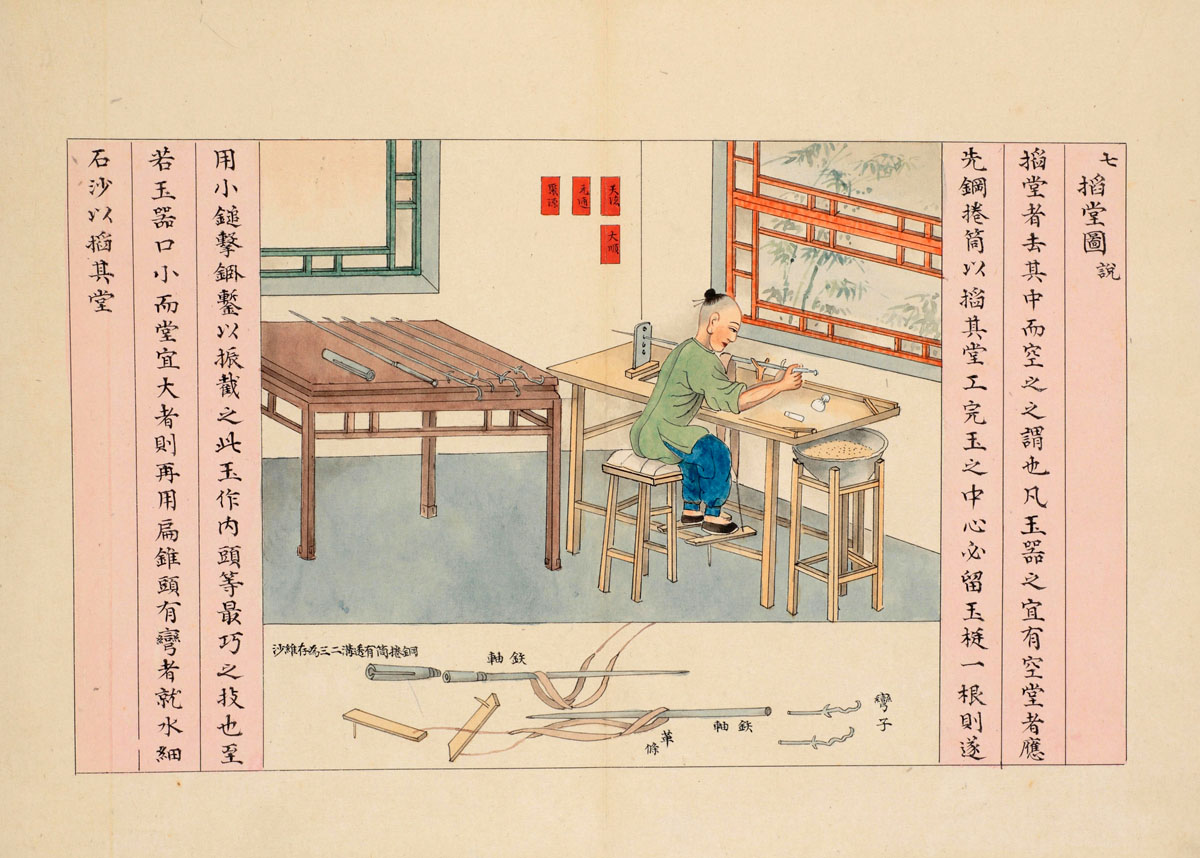 七 搯堂圖說
搯堂者去其中而空之之謂也凡玉器之宜有空堂者應
先鋼捲筒以搯其堂工完玉之中心必留玉梃一根則遂
大順
元通
聚源
用小鎚擊鋼鏨以振截之此玉作內頭等最巧之技也至
若玉器口小而堂宜大者則再用扁錐頭有彎者就水細
石沙以搯其堂
鋼捲筒有透溝二三為存維沙
鉄軸
鉄軸
革條
彎子